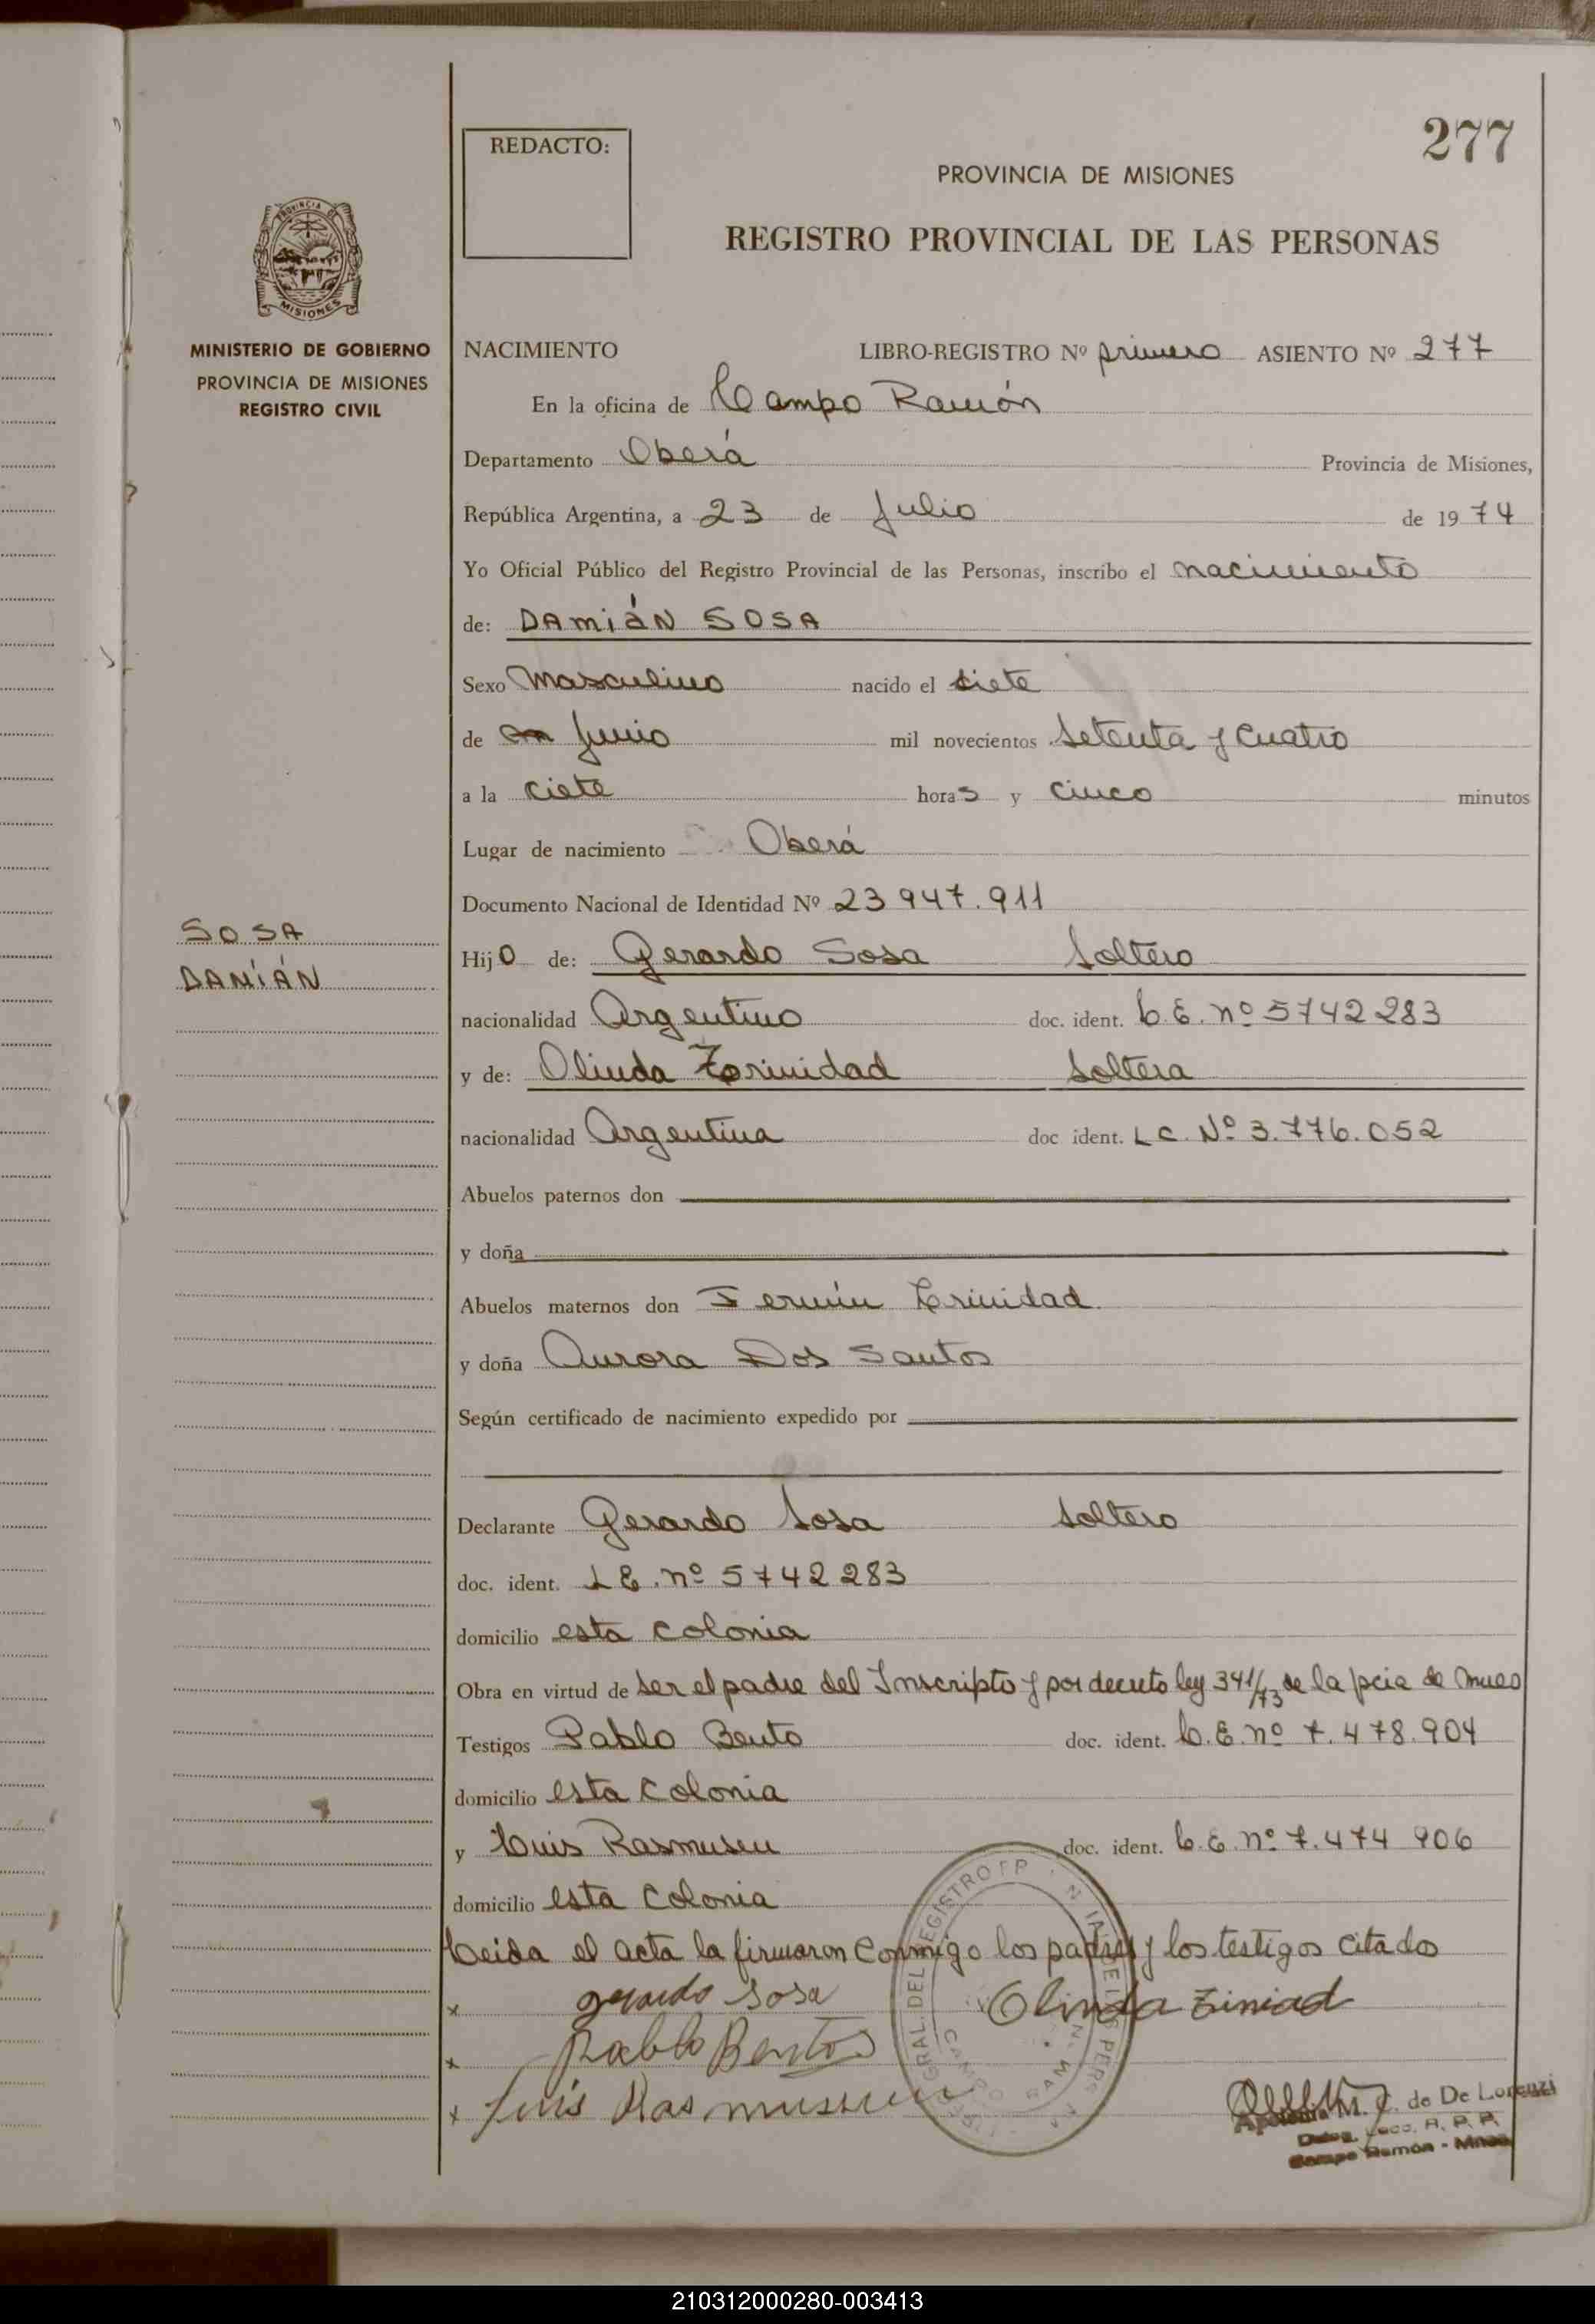 277
REDACTO:
PROVINCIA DE MISIONES
REGISTRO PROVINCIAL DE LAS PERSONAS
PROVINCIA DE
MISIONES
MINISTERIO DE GOBIERNO
PROVINCIA DE MISIONES
REGISTRO CIVIL
NACIMIENTO LIBRO-REGISTRO Nº primero ASIENTO Nº 277
En la oficina de Campo Ramón
Departamento Oberá Provincia de Misiones,
República Argentina, a 23 de Julio de 1974
Yo Oficial Público del Registro Provincial de las Personas, inscribo el nacimiento
de: DAMIÁN SOSA
Sexo Masculino nacido el siete
de Junio mil novecientos setenta y cuatro
a la ciete horas y cinco minutos
Lugar de nacimiento Oberá
Documento Nacional de Identidad Nº 23947.911
SOSA
DAMIÁN
Hijo de: Gerardo Sosa Soltero
nacionalidad Argentino doc. ident. L.E. nº 5742283
y de: Olinda Trinidad Soltera
nacionalidad Argentina doc ident. L C. Nº 3.776.052
Abuelos paternos don
y doña
Abuelos maternos don Fermín Trinidad
y doña Aurora Dos Santos
Según certificado de nacimiento expedido por
Declarante Gerardo Sosa soltero
doc. ident. L E. nº 5742283
domicilio esta colonia
Obra en virtud de ser el padre del Inscripto y por decreto ley 341/73 de la pcia de Mnes
Testigos Pablo Bento doc. ident. L.E. nº 7.478.904
domicilio esta Colonia
y Luis Rasmusen doc. ident. L.E. nº 7.474 906
domicilio esta Colonia
Leida el acta la firmaron conmigo los padres y los testigos citados
x gerardo sosa Olinda Ziniad
x Pablo Bentos
x Luis Rasmussen
M. C. de De Lorenzi
R. P. P.
Campo Ramón - Mnes
210312000280-003413